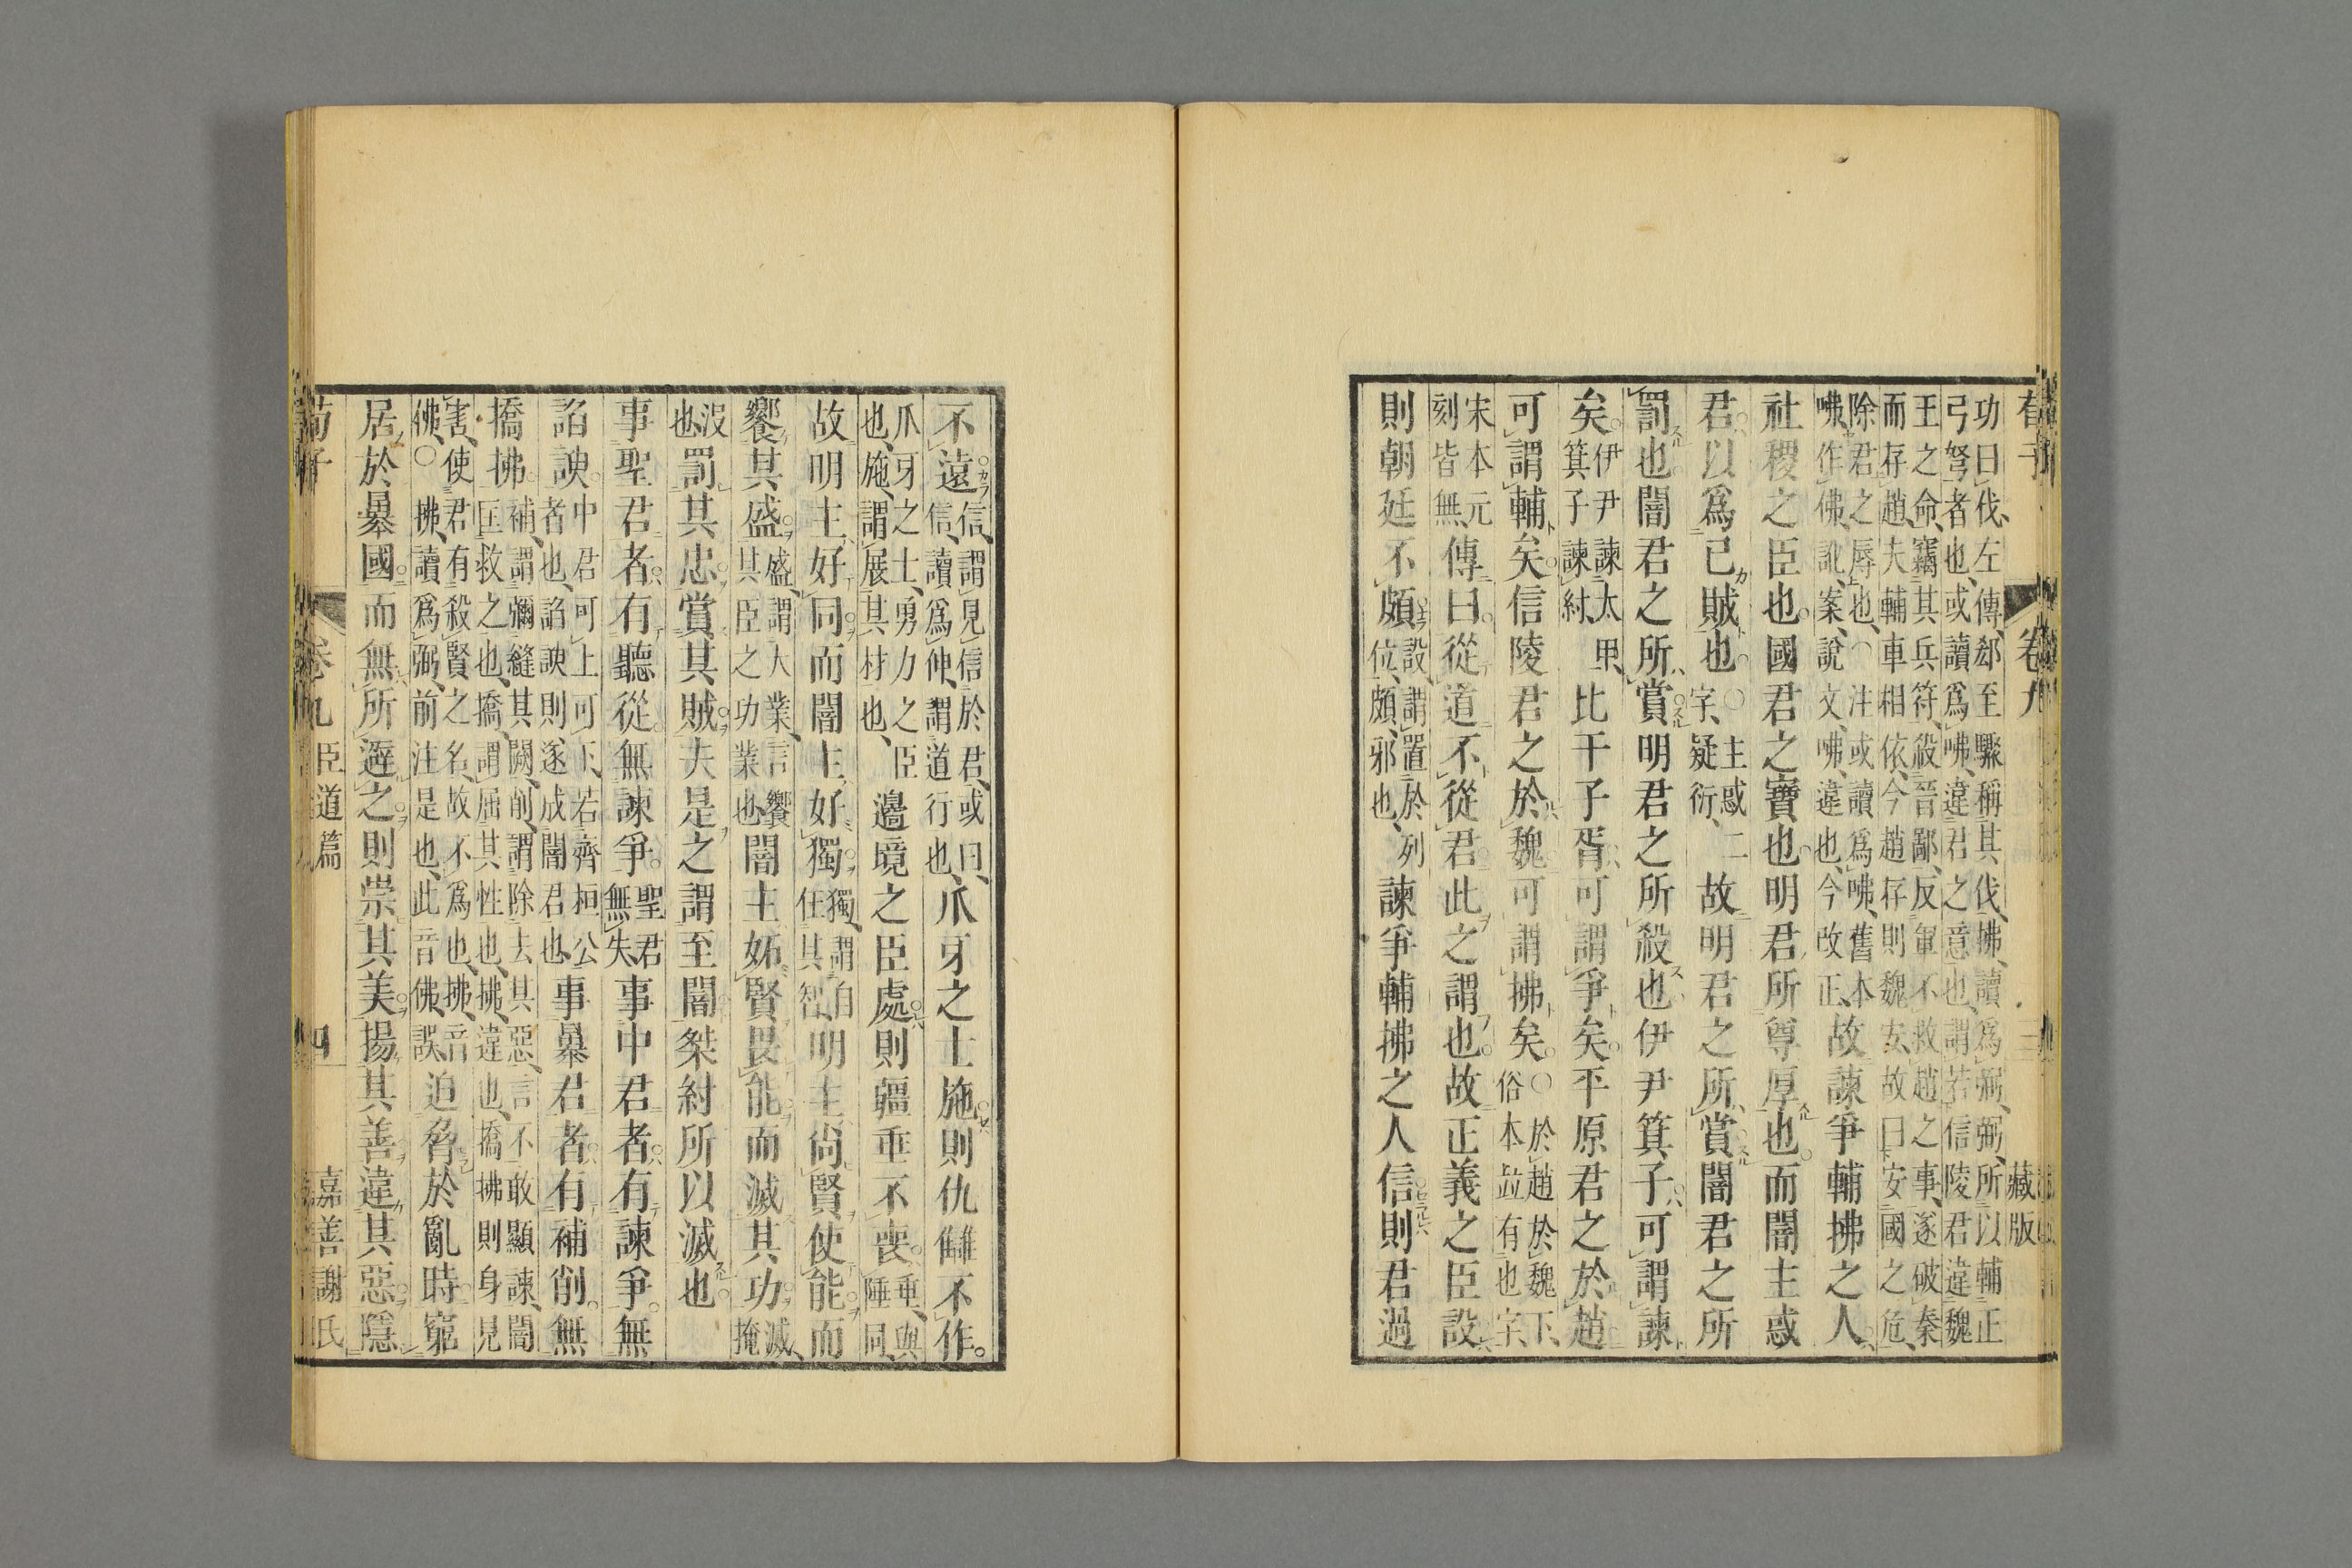 荀子 卷九 三 藏版
功曰伐、左傳、郤至驟稱其伐、拂、讀爲弼、弼、所以輔正
弓弩者也、或讀爲咈、違君之意也、謂若信陵君違魏
王之命、竊其兵符、殺晉鄙、反軍不救趙之事、遂破秦
而存趙、夫輔車相依、今趙存則魏安、故曰安國之危、
除君之辱也、〇注或讀爲咈、舊本
咈作佛、訛、案、說文、咈、違也、今改正、故諫爭輔拂之人、
社稷之臣也。國君之寶也。明君所尊厚也。而闇主惑
君。以爲己賊也。〇主惑二字、疑衍、故明君之所賞闇君之所
罰也闇君之所賞明君之所殺也伊尹箕子可謂諫
矣。伊尹諫太甲、箕子諫紂、比干子胥可謂爭矣。平原君之於趙
可謂輔矣。信陵君之於魏可謂拂矣。〇於趙於魏下、俗本竝有也字、
宋本元刻皆無、傳曰。從道不從君此之謂也。故正義之臣設
則朝廷不頗設、謂置於列位、頗、邪也、諫爭輔拂之人信則君過
不遠信、謂見信於君、或曰、信、讀爲伸、謂道行也、爪牙之士施則仇讎不作。
爪牙之士、勇力之臣也、施、謂展其材也、邊境之臣處則疆垂不喪。垂、與陲同、
故明主好同而闇主好獨獨、謂自任其智、明主尚賢使能而
饗其盛。盛、謂大業、言饗其臣之功業也闇主妬賢畏能而滅其功滅、掩
沒也罰其忠賞其賊夫是之謂至闇桀紂所以滅也。
事聖君者有聽從。無諫爭。聖君無失事中君者有諫爭。無
諂諛。中君可上可下、若齊桓公者也、諂諛則遂成闇君也、事暴君者有補削。無
撟拂。補、謂彌縫其闕、削、謂除去其惡、言不敢顯諫、闇匡救之也、撟、謂屈其性也、拂、違也、撟拂則身見
害、使君有殺賢之名、故不爲也、拂、音佛、〇拂、讀爲弼、前注是也、此音佛、誤、迫脅於亂時窮
居於暴國。而無所避之則崇其美揚其善違其惡隱
荀子 卷九 臣道篇 四 嘉善謝氏